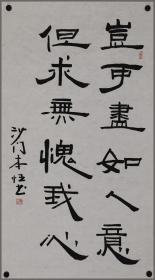 豈可盡如人意
但求無愧我心
沙门本性书